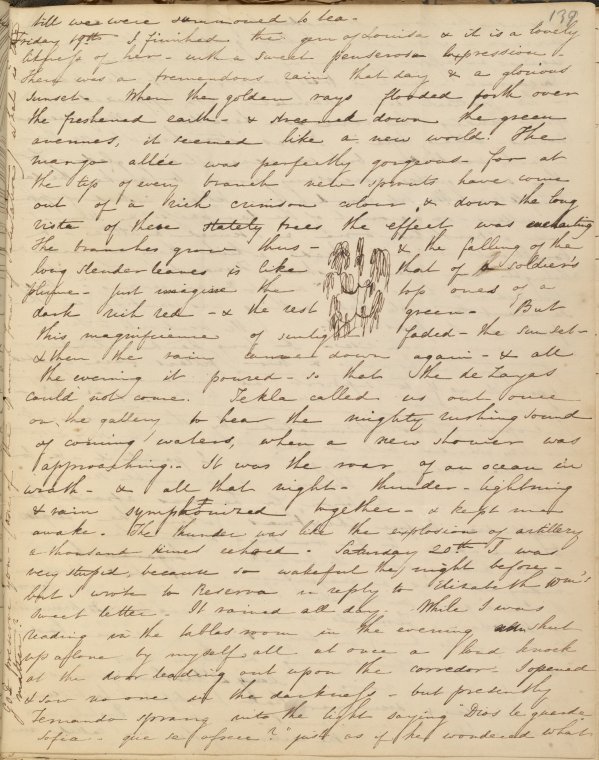 139
till we were summoned to tea.
Friday 19th I finished the gem of Louisa & it is a lovely
likeness of her - with a sweet penserosa expression.
There was a tremendous rain that day & a glorious
sunset - When the golden rays flooded forth over
the freshened earth - & streamed down the green
avenues, it seemed like a new world. The
mango allée was perfectly gorgeous - for at
the tip of every branch new sprouts have come
out of a rich crimson colour, & down the long
vista of these stately trees the effect was enchanting
The branches grow thus - & the falling of the
long slender leaves is like that of a soldier's
plume - Just imagine the top ones of a
dark rich red - & the rest green - But
this magnificence of sunlight faded - the sun set -
& then the rain came down again - & all
the evening it poured - so that the de Layas
could not come. Tekla called us out once
on the gallery to hear the mighty rushing sound
of coming waters, when a new shower was
approaching. It was the roar of an ocean in
wrath - & all that night - thunder - lightning
& rain symphonized together - & kept me
awake. The thunder was like the explosion of artillery
a thousand times echoed. Saturday 20th I was
very stupid, because so wakeful the night before -
but I wrote to Reserva in reply to Elizabeth
sweet letter. It rained all day. While I was
reading in the tables room in the evening shut
up alone by myself all at once a loud knock
at the door leading out upon the corredor. I opened
& saw no one in the darkness - but presently
Fernando sprang into the light saying "Dios le guarde
Sofia - que se ofrece?" just as if he wondered what